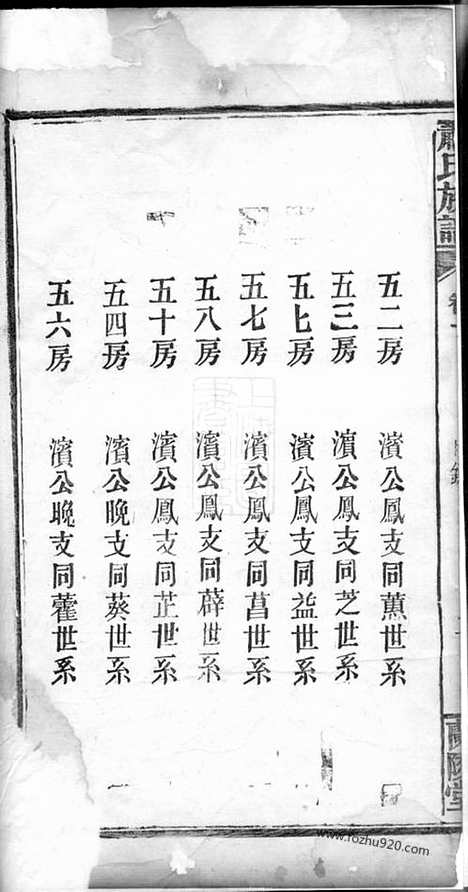 蕭氏族譜
卷一
五二房 濱公鳳支同薰世系
五三房 濱公鳳支同芝世系
五七房 濱公鳳支同益世系
五七房 濱公鳳支同菖世系
五八房 濱公鳳支同薜世系
五十房 濱公鳳支同芷世系
五四房 濱公晚支同葵世系
五六房 濱公晚支同藿世系
蘭陵堂
www.fozhu920.com